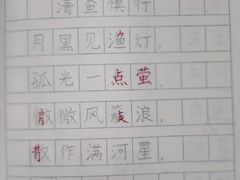 清 查慎行
月黑见渔灯，
孤光一点萤。
微微风簇浪，
散作满河星。